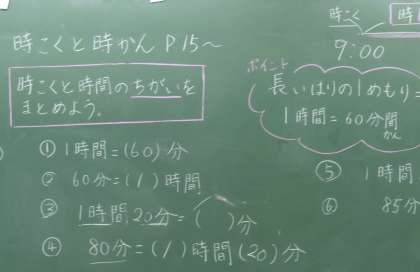 時こくと時かん P15〜
時こくと時間のちがいを
まとめよう。
①1時間=(60)分
②60分=(1)時間
③1時間20分=( )分
④80分=(1)時間(20)分
時こく
9:00
ポイント
長いはりの1めもり=
1時間=60分間
かん
⑤ 1時間
⑥ 85分